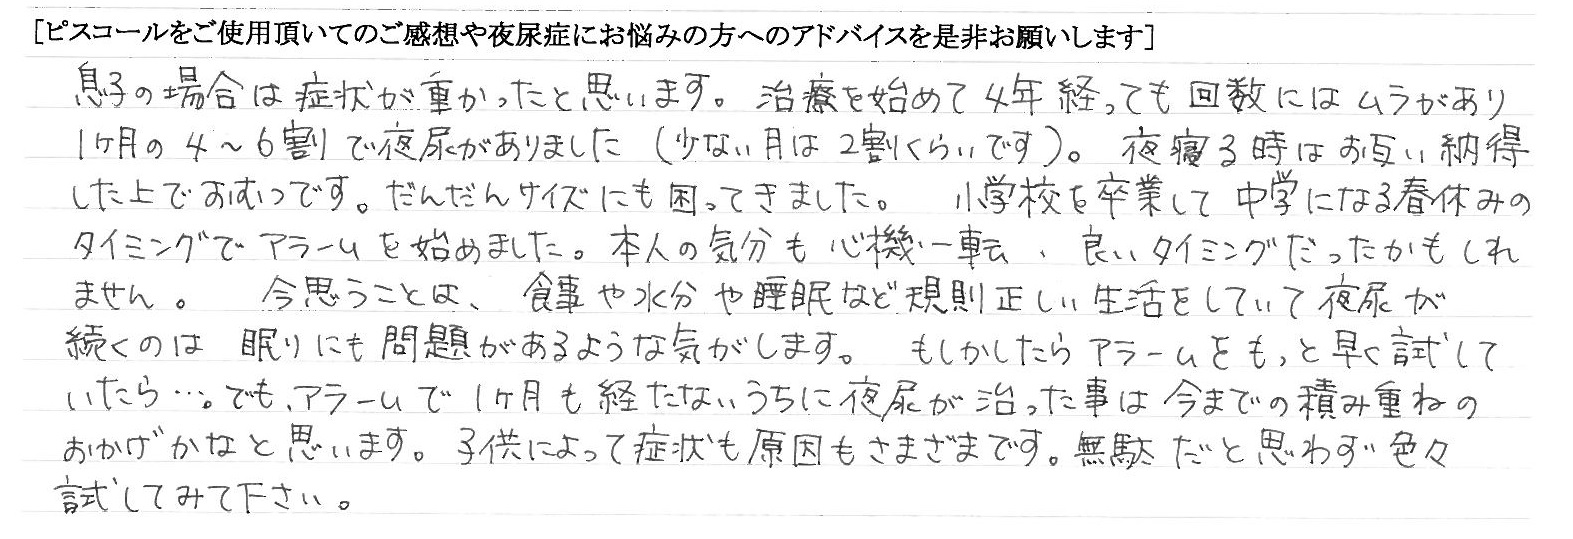 [ピスコールをご使用頂いてのご感想や夜尿症にお悩みの方へのアドバイスを是非お願いします]
息子の場合は症状が重かったと思います。治療を始めて4年経っても回数にはムラがあり
1ヶ月の4～6割で夜尿がありました(少ない月は2割くらいです)。夜寝る時はお互い納得
した上でおむつです。だんだんサイズにも困ってきました。 小学校を卒業して中学になる春休みの
タイミングでアラームを始めました。本人の気分も心機一転、良いタイミングだったかもしれ
ません。 今思うことは、食事や水分や睡眠など規則正しい生活をしていて夜尿が
続くのは眠りにも問題があるような気がします。 もしかしたらアラームをもっと早く試して
いたら…。でも、アラームで1ヶ月も経たないうちに夜尿が治った事は今までの積み重ねの
おかげかなと思います。子供によって症状も原因もさまざまです。無駄だと思わず色々
試してみて下さい。